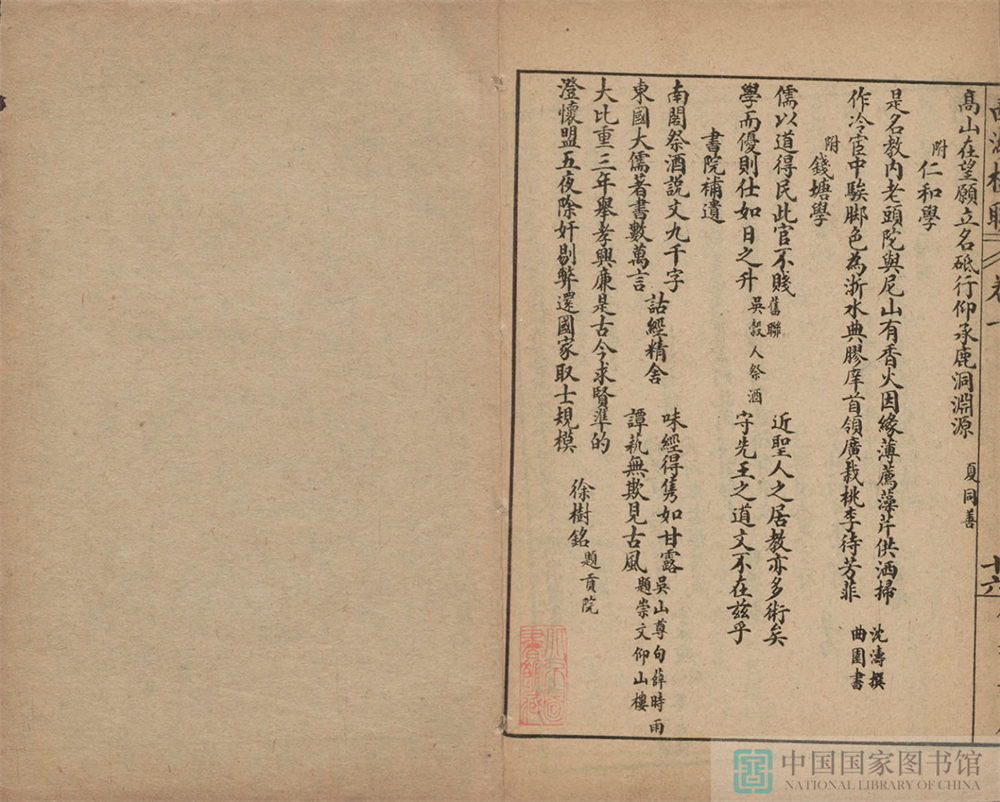 西湖楹聯 卷一
十六
高山在望願立名砥行仰承鹿洞淵源 夏同善
附仁和學
是名教內老頭院與尼山有香火因緣薄薦藻芹供洒掃
作冷宦中駿脚色為浙水典膠庠首領廣栽桃李待芳菲 沈濤撰 曲園書
附錢塘學
儒以道得民此官不賤 舊聯 近聖人之居教亦多術矣
學而優則仕如日之升 吳穀人祭酒 守先王之道文不在兹乎
書院補遺
南閣祭酒説文九千字
東國大儒著書數萬言 詁經精舍
味經得雋如甘露 吳山尊句薛時雨
譚蓺無欺見古風 題崇文仰山樓
大比重三年舉孝興廉是古今求賢準的
澄懷盟五夜除奸剔弊還國家取士規模 徐樹銘 題貢院
中国国家图书馆
NATIONAL LIBRARY OF CHINA